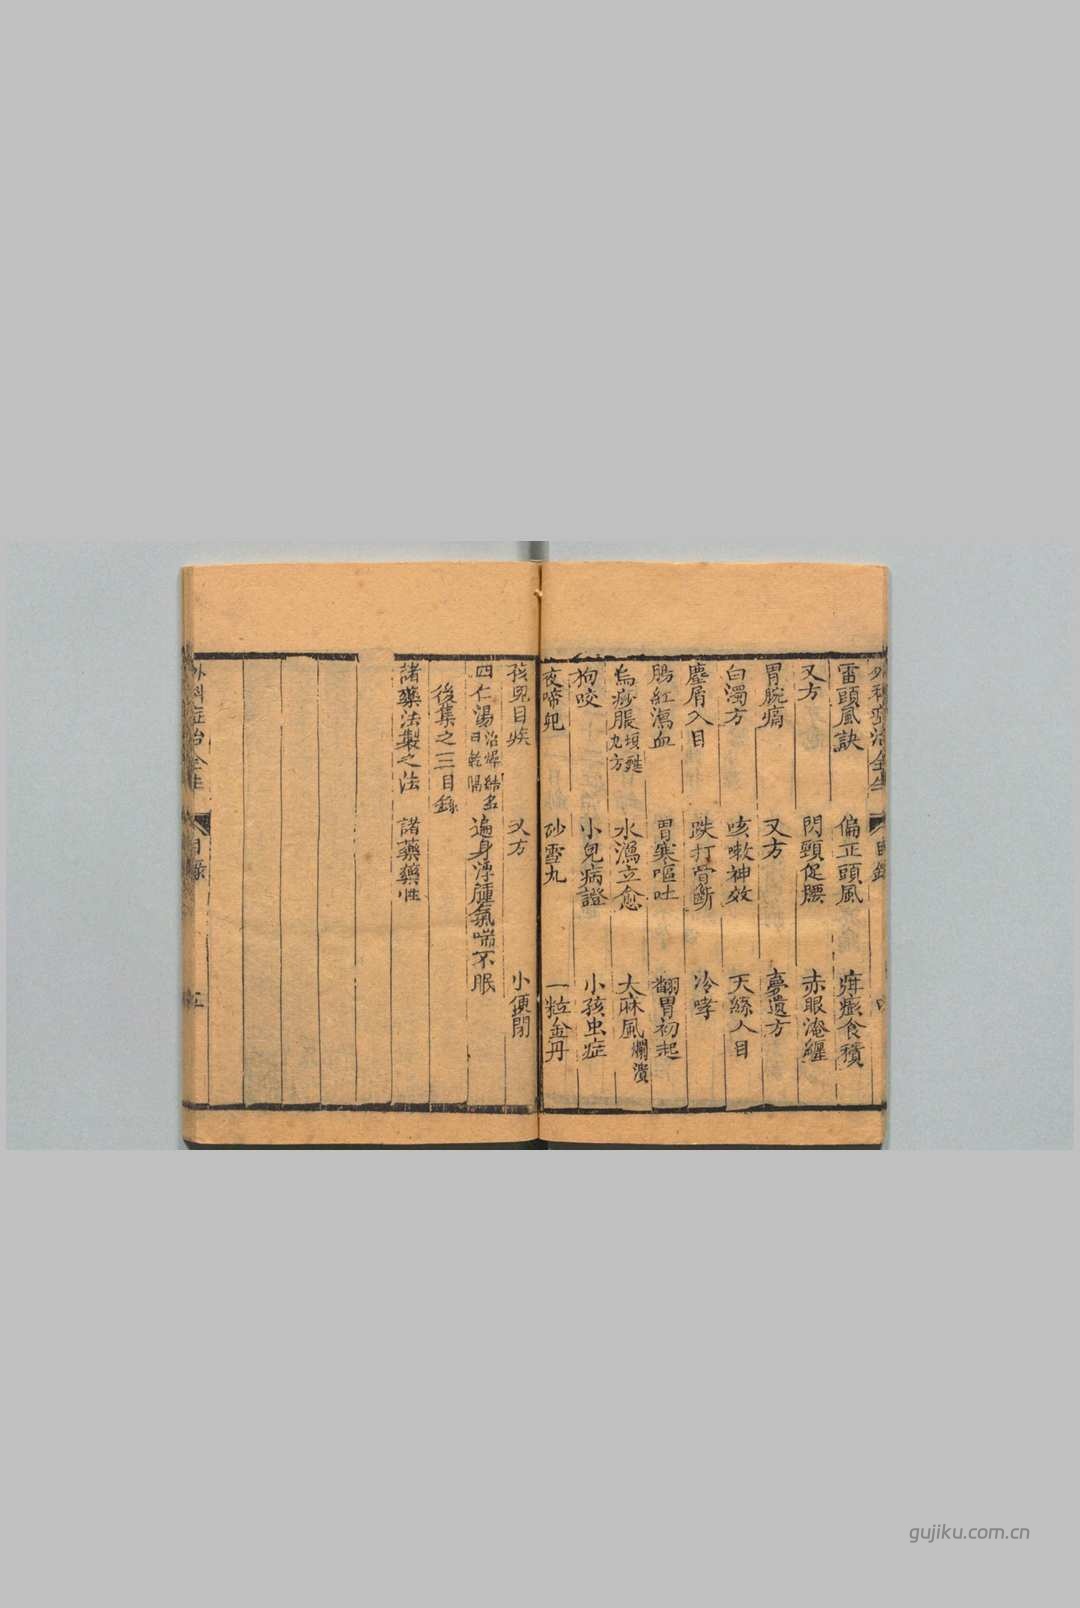 外科症治全生 目錄 四
雷頭風訣 偏正頭風 疳膨食積
又方 閃頸促腰 赤眼淹纏
胃脘痛 又方 夢遺方
白濁方 咳嗽神效 天絲入目
塵屑入目 跌打骨斷 冷哮
腸紅瀉血 胃寒嘔吐 翻胃初起
烏痧脹 九方 水瀉立愈 大麻風爛潰
狗咬 小兒病證 小孩虫症
夜啼兒 砂雪丸 一粒金丹
孩兒目疾 又方 小便閉
四仁湯 遍身浮腫氣喘不眠
後集之三目錄
諸藥法製之法 諸藥藥性
外科症治全生 目錄 五
gujiku.com.cn